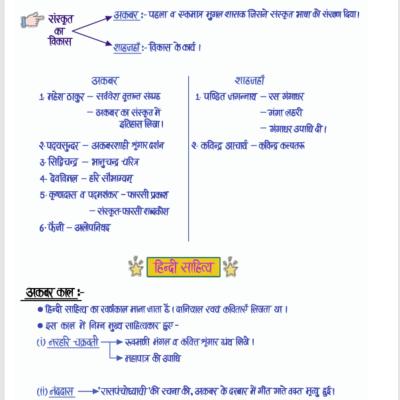 संस्कृत का विकास
अकबर :- पहला व एकमात्र मुगल शासक जिसने संस्कृत भाषा को संरक्षण दिया।
शाहजहाँ :- विकास के कार्य।
अकबर
1. महेश ठाकुर – सर्वदेश वृत्तान्त संग्रह
– अकबर का संस्कृत में इतिहास लिखा।
2. पद्मसुन्दर – अकबरशाही श्रृंगार दर्पण
3. सिद्धिचन्द्र – भानुचन्द्र चरित्र
4. देवविमल – हरि सौभाग्यम्
5. कृष्णदास व पदमशंकर – फारसी प्रकाश
– संस्कृत-फारसी शब्दकोश
6. फैजी – अलोपनिषद
शाहजहाँ
1. पण्डित जगन्नाथ – रस गंगाधर
– गंगा लहरी
– गंगाधर उपाधि दी।
2. कविन्द्र आचार्य – कविन्द्र कल्पतरू
हिन्दी साहित्य
अकबर काल :-
• हिन्दी साहित्य का स्वर्णकाल माना जाता है। दानियाल स्वयं कविताएँ लिखता था।
• इस काल में निम्न मुख्य साहित्यकार हुए -
(i) नरहरि चक्रवर्ती → रूक्मणि मंगल व कवित्त श्रृंगार ग्रंथ लिखे।
→ महापात्र की उपाधि
(ii) नंददास - 'रासपंचाध्यायी' की रचना की, अकबर के दरबार में गीत गाते वक्त मृत्यु हुई।